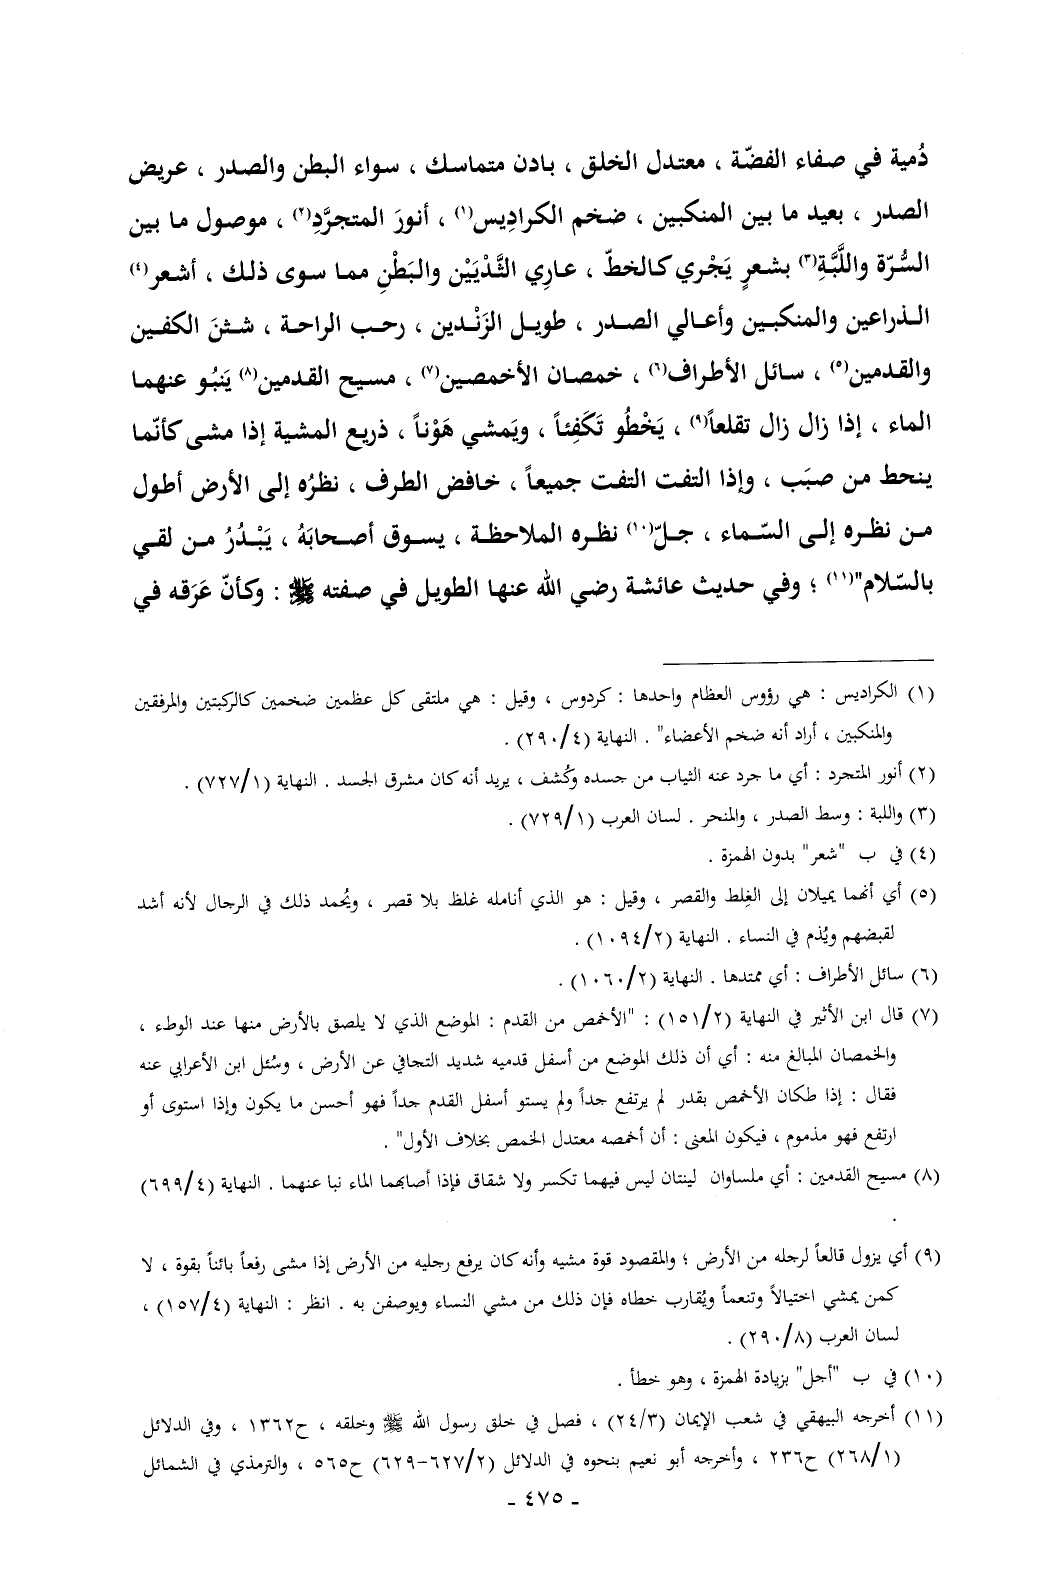 دُمية في صفاء الفضّة ، معتدل الخلق ، بادن متماسك ، سواء البطن والصدر ، عريض
الصدر ، بعيد ما بين المنكبين ، ضخم الكرادِيس(١) ، أنورَ المتجرَّدِ(٢) ، موصول ما بين
السُّرّة واللَّبَّةِ(٣) بشعرٍ يَجْري كالخطّ ، عارِي الثَّدْيَيْن والبَطْنِ مما سوى ذلك ، أشعر(٤)
الذراعين والمنكبين وأعالي الصدر ، طويل الزَنْدين ، رحب الراحة ، شثنَ الكفين
والقدمين(٥) ، سائل الأطراف(٦) ، خمصان الأخمصين(٧) ، مسيح القدمين(٨) يَنبُو عنهما
الماء ، إذا زال زال تقلعاً(٩) ، يَخْطُو تَكَفِئاً ، ويَمشي هَوْناً ، ذريع المشية إذا مشى كأنّما
ينحط من صبَب ، وإذا التفت التفت جميعاً ، خافض الطرف ، نظرُه إلى الأرض أطول
من نظره إلى السّماء ، جلّ(١٠) نظره الملاحظة ، يسوق أصحابَهُ ، يَبْدُرُ من لقي
بالسّلام"(١١) ؛ وفي حديث عائشة رضي الله عنها الطويل في صفته ﷺ : وكأنّ عَرَقه في
(١) الكراديس : هي رؤوس العظام واحدها : كردوس ، وقيل : هي ملتقى كل عظمين ضخمين كالركبتين والمرفقين
والمنكبين ، أراد أنه ضخم الأعضاء" . النهاية (٢٩٠/٤) .
(٢) أنور المتجرد : أي ما جرد عنه الثياب من جسده وكُشف ، يريد أنه كان مشرق الجسد . النهاية (٧٢٧/١) .
(٣) واللبة : وسط الصدر ، والمنحر . لسان العرب (٧٢٩/١) .
(٤) في ب "شعر" بدون الهمزة .
(٥) أي أنهما يميلان إلى الغِلط والقصر ، وقيل : هو الذي أنامله غلظ بلا قصر ، ويُحمد ذلك في الرجال لأنه أشد
لقبضهم ويُذم في النساء . النهاية (١٠٩٤/٢) .
(٦) سائل الأطراف : أي ممتدها . النهاية (١٠٦٠/٢) .
(٧) قال ابن الأثير في النهاية (١٥١/٢) : "الأخمص من القدم : الموضع الذي لا يلصق بالأرض منها عند الوطء ،
والخمصان المبالغ منه : أي أن ذلك الموضع من أسفل قدميه شديد التجافي عن الأرض ، وسُئل ابن الأعرابي عنه
فقال : إذا طكان الأخمص بقدر لم يرتفع جداً ولم يستو أسفل القدم جداً فهو أحسن ما يكون وإذا استوى أو
ارتفع فهو مذموم ، فيكون المعنى : أن أخمصه معتدل الخمص بخلاف الأول" .
(٨) مسيح القدمين : أي ملساوان لينتان ليس فيهما تكسر ولا شقاق فإذا أصابهما الماء نبا عنهما . النهاية (٦٩٩/٤)
.
(٩) أي يزول قالعاً لرجله من الأرض ؛ والمقصود قوة مشيه وأنه كان يرفع رجليه من الأرض إذا مشى رفعاً بائناً بقوة ، لا
كمن يمشي اختيالاً وتنعماً ويُقارب خطاه فإن ذلك من مشي النساء ويوصفن به . انظر : النهاية (١٥٧/٤) ،
لسان العرب (٢٩٠/٨) .
(١٠) في ب "أجل" بزيادة الهمزة ، وهو خطأ .
(١١) أخرجه البيهقي في شعب الإيمان (٢٤/٣) ، فصل في خلق رسول الله ﷺ وخلقه ، ح١٣٦٢ ، وفي الدلائل
(٢٦٨/١) ح٢٣٦ ، وأخرجه أبو نعيم بنحوه في الدلائل (٦٢٧/٢-٦٢٩) ح٥٦٥ ، والترمذي في الشمائل
- ٤٧٥ -